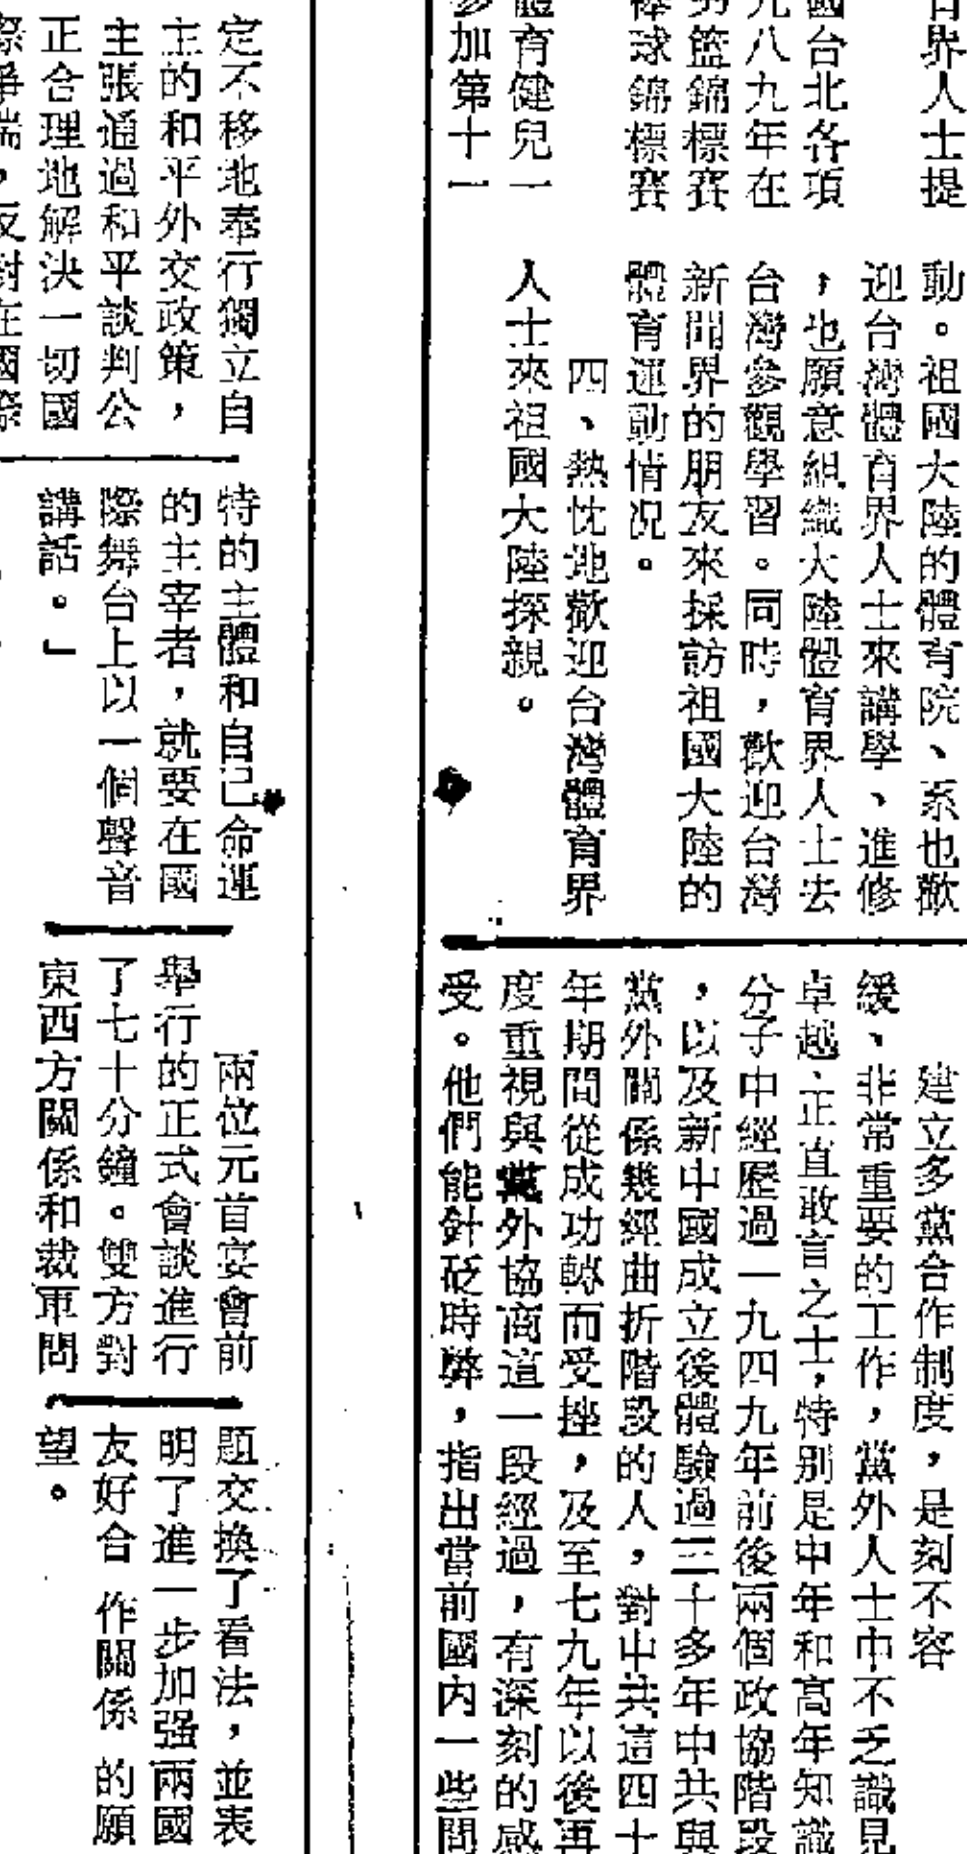 界人士提
國台北各項
九八九年在
男籃錦標賽
棒球錦標賽
體育健兒一
參加第十一
動。祖國大陸的體育院、系也歡
迎台灣體育界人士來講學、進修
，也願意組織大陸體育界人士去
台灣參觀學習。同時，歡迎台灣
新聞界的朋友來採訪祖國大陸的
體育運動情況。
四、熱忱地歡迎台灣體育界
人士來祖國大陸探親。
建立多黨合作制度，是刻不容
緩、非常重要的工作，黨外人士中不乏識見
卓越、正直敢言之士，特別是中年和高年知識
分子中經歷過一九四九年前後兩個政協階段
，以及新中國成立後體驗過三十多年中共與
黨外關係幾經曲折階段的人，對中共這四十
年期間從成功轉而受挫，及至七九年以後再
度重視與黨外協商這一段經過，有深刻的感
受。他們能針砭時弊，指出當前國內一些問
定不移地奉行獨立自
主的和平外交政策，
主張通過和平談判公
正合理地解決一切國
際爭端，反對在國際
特的主體和自己命運
的主宰者，就要在國
際舞台上以一個聲音
講話。」
兩位元首宴會前
舉行的正式會談進行
了七十分鐘。雙方對
東西方關係和裁軍問
題交換了看法，並表
明了進一步加强兩國
友好合作關係的願
望。